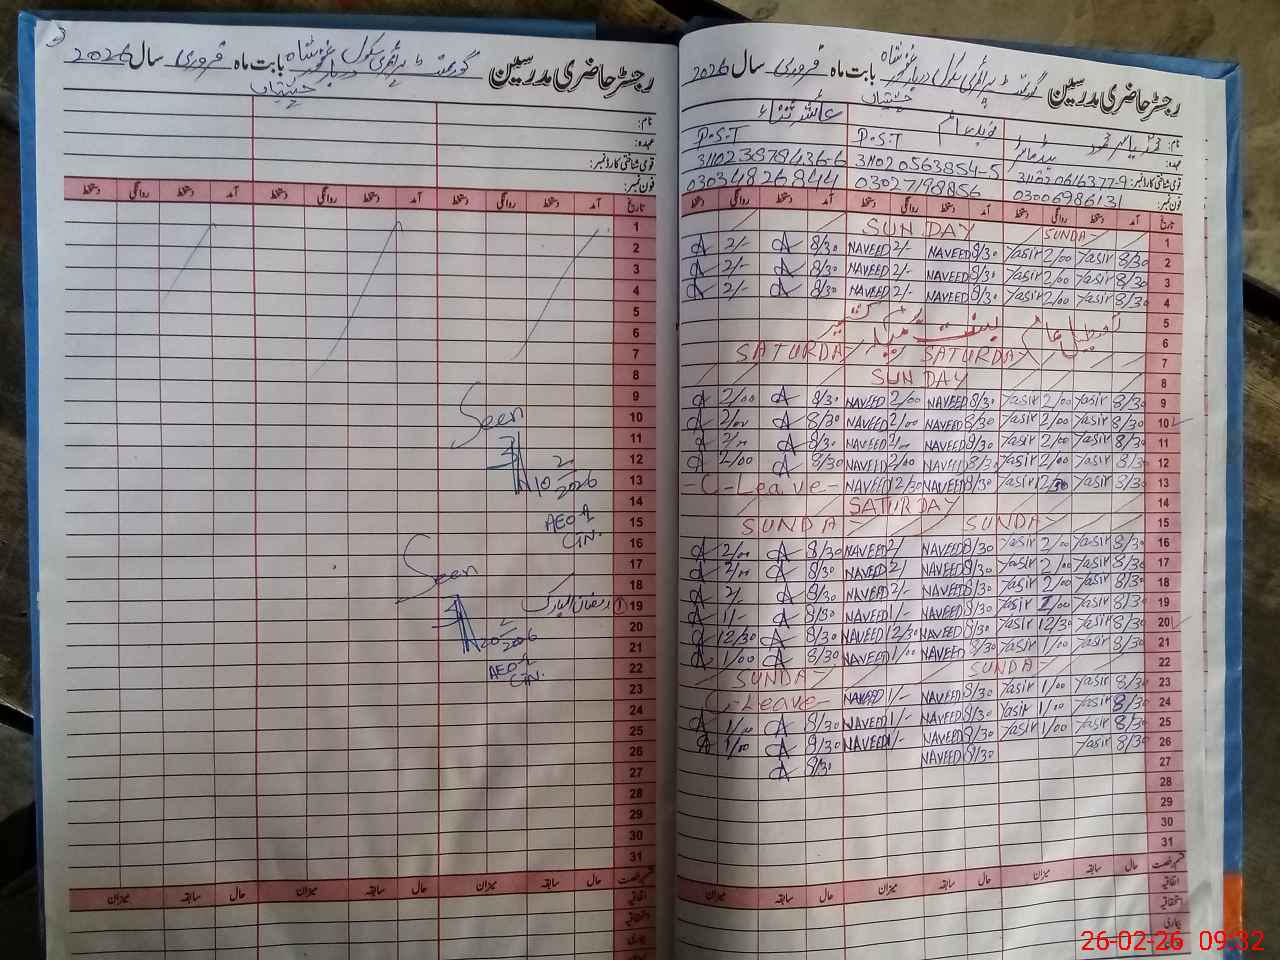 رجسٹر حاضری مدرسین گورنمنٹ پرائمری سکول دربار غوثشاہ بابت ماہ فروری سال 2026
چشتیاں
نام: محمد یاسر نوید عالم
عہدہ: ہیڈ ماسٹر P.S.T P.S.T
قومی شناختی کارڈ نمبر: 3110205638545 3110238784366
فون نمبر: 03006986131 03027198856 03034826844
تاریخ آمد دستخط روانگی دستخط آمد دستخط روانگی دستخط آمد دستخط روانگی دستخط
1 SUNDAY SUNDAY
2 8/30 Yasir 2/00 Yasir 8/30 NAVEED 2/- NAVEED 8/30 2/-
3 8/30 Yasir 2/00 Yasir 8/30 NAVEED 2/- NAVEED 8/30 2/-
4 8/30 Yasir 2/00 Yasir 8/30 NAVEED 2/- NAVEED 8/30 2/-
5 تعطیل عام یوم کشمیر
6 بسنت میلہ
7 SATURDAY SATURDAY
8 SUNDAY
9 8/30 Yasir 2/00 Yasir 8/30 NAVEED 2/00 NAVEED 8/30 2/00
10 8/30 Yasir 2/00 Yasir 8/30 NAVEED 2/00 NAVEED 8/30 2/00
11 8/30 Yasir 2/00 Yasir 8/30 NAVEED 2/00 NAVEED 8/30 2/00
12 8/30 Yasir 2/00 Yasir 8/30 NAVEED 2/00 NAVEED 8/30 2/00
13 8/30 Yasir 12/30 8/30 NAVEED 12/30 NAVEED -C-Leave-
14 SATURDAY
15 SUNDAY SUNDAY
16 8/30 Yasir 2/00 Yasir 8/30 NAVEED 2/ NAVEED 8/30 2/00
17 8/30 Yasir 2/00 Yasir 8/30 NAVEED 2/ NAVEED 8/30 2/00
18 8/30 Yasir 2/00 Yasir 8/30 NAVEED 2/- NAVEED 8/30 2/
19 8/30 Yasir 1/00 Yasir 8/30 NAVEED 1/- NAVEED 8/30 1/-
20 8/30 Yasir 12/30 Yasir 8/30 NAVEED 12/30 NAVEED 8/30 12/30
21 8/30 Yasir 1/00 Yasir 8/30 NAVEED 1/00 NAVEED 8/30 1/00
22 SUNDAY SUNDAY
23 8/30 Yasir 1/00 Yasir 8/30 NAVEED 1/- NAVEED C-Leave-
24 8/30 Yasir 1/00 Yasir 8/30 NAVEED 1/- NAVEED 8/30 1/00
25 8/30 Yasir 1/00 Yasir 8/30 NAVEED 1/- NAVEED 8/30 1/00
26 8/30 Yasir 8/30 NAVEED 8/30
27
28
29
30
31
قسم رخصت حال سابقہ میزان حال سابقہ میزان حال سابقہ میزان
اتفاقیہ
استحقاقیہ
بیماری
رجسٹر حاضری مدرسین گورنمنٹ پرائمری سکول دربار غوثشاہ بابت ماہ فروری سال 2026
چشتیاں
نام:
عہدہ:
قومی شناختی کارڈ نمبر:
فون نمبر:
تاریخ آمد دستخط روانگی دستخط آمد دستخط روانگی دستخط آمد دستخط روانگی دستخط
1
2
3
4
5
6
7
8
9
10 Seen
11
12
13 10 2/2026
14
15 AEO
16
17
18 Seen
19 ① رمضان المبارک
20
21 20 2/2026
22 AEO
23
24
25
26
27
28
29
30
31
قسم رخصت حال سابقہ میزان حال سابقہ میزان حال سابقہ میزان
اتفاقیہ
استحقاقیہ
بیماری
26-02-26 09:32